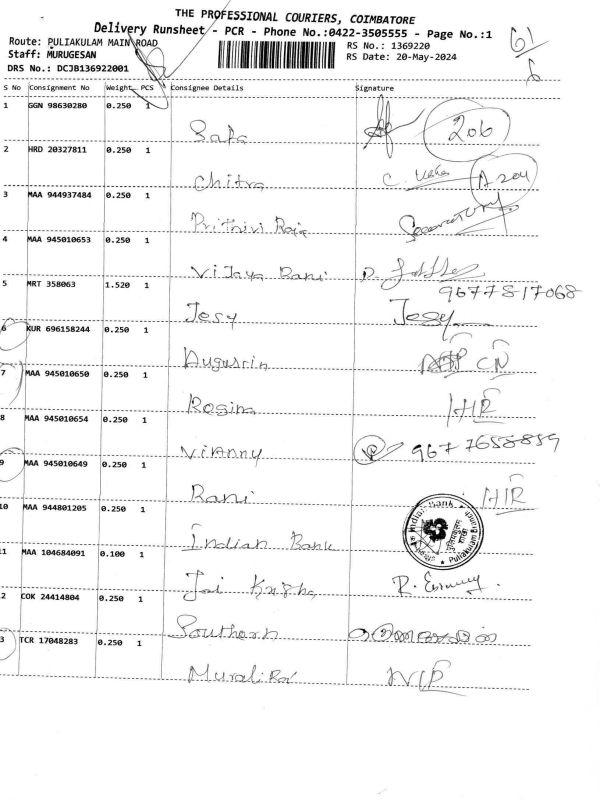 THE PROFESSIONAL COURIERS, COIMBATORE
Delivery Runsheet - PCR - Phone No.:0422-3505555 - Page No.:1
Route: PULIAKULAM MAIN ROAD
RS No.: 1369220
Staff: MURUGESAN
RS Date: 20-May-2024
DRS No.: DCJB136922001
61/6
S No Consignment No Weight PCS Consignee Details Signature
1 GGN 98630280 0.250 1
206
2 HRD 20327811 0.250 1
Chitra
3 MAA 944937484 0.250 1
Prithivi Raja
4 MAA 945010653 0.250 1
Vijaya Rani
5 MRT 358063 1.520 1 9677817068
Josy Josy
6 KUR 696158244 0.250 1
Augusrin CN
7 MAA 945010650 0.250 1
Rosina HR
8 MAA 945010654 0.250 1
Vianny 9677658859
9 MAA 945010649 0.250 1
Rani HR
10 MAA 944801205 0.250 1
Indian Bank
11 MAA 104684091 0.100 1
2 COK 24414804 0.250 1
Southern
3 TCR 17048283 0.250 1